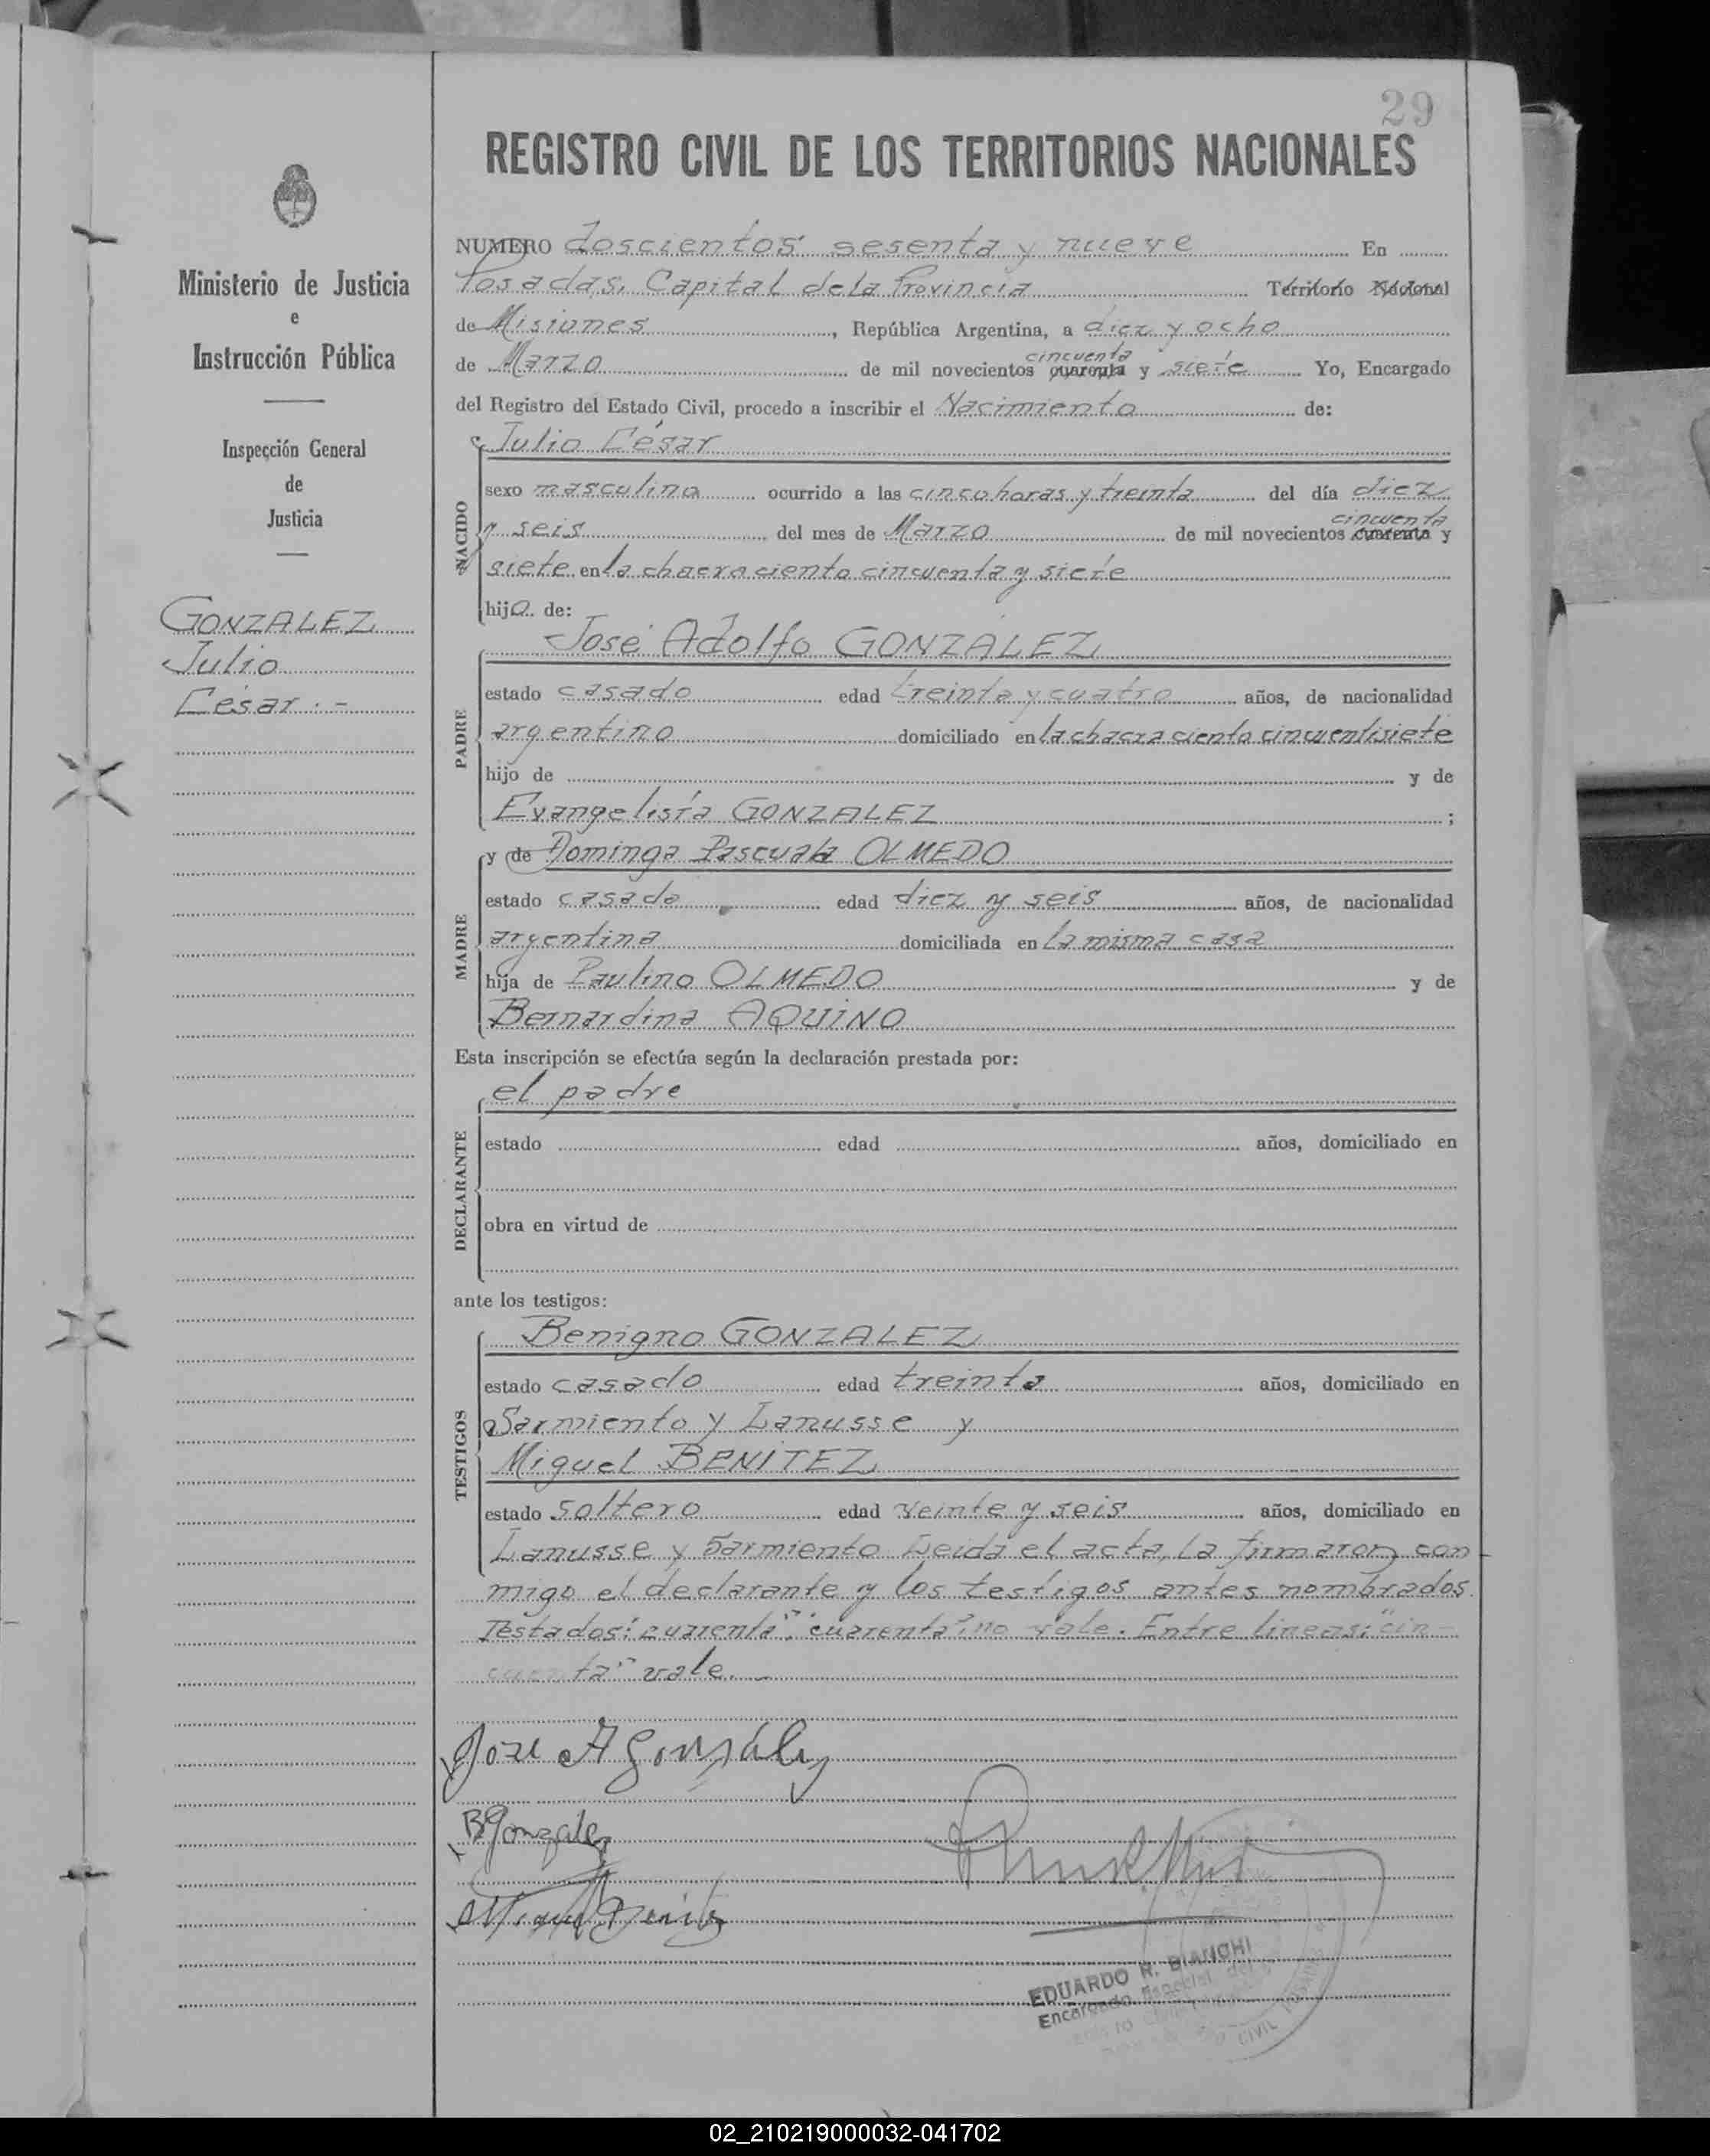 29
REGISTRO CIVIL DE LOS TERRITORIOS NACIONALES
Ministerio de Justicia
e
Instrucción Pública
Inspección General
de
Justicia
GONZALEZ
Julio
César.-
NUMERO doscientos sesenta y nueve En
Posadas, Capital de la Provincia Territorio Nacional
de Misiones, República Argentina, a diez y ocho
cincuenta
de Marzo de mil novecientos cuarenta y siete Yo, Encargado
del Registro del Estado Civil, procedo a inscribir el Nacimiento de:
Julio César
NACIDO
sexo masculino ocurrido a las cinco horas y treinta del día diez
cincuenta
y seis del mes de Marzo de mil novecientos cuarenta y
siete en la chacra ciento cincuenta y siete
hijo de:
José Adolfo GONZALEZ
PADRE
estado casado edad treinta y cuatro años, de nacionalidad
argentino domiciliado en la chacra ciento cincuentisiete
hijo de y de
Evangelista GONZALEZ ;
MADRE
y de Dominga Pascuala OLMEDO
estado casada edad diez y seis años, de nacionalidad
argentina domiciliada en la misma casa
hija de Paulino OLMEDO y de
Bernardina AQUINO
Esta inscripción se efectúa según la declaración prestada por:
el padre
DECLARANTE
estado edad años, domiciliado en
obra en virtud de
ante los testigos:
TESTIGOS
Benigno GONZALEZ
estado casado edad treinta años, domiciliado en
Sarmiento y Lanusse y
Miguel BENITEZ
estado soltero edad veinte y seis años, domiciliado en
Lanusse y Sarmiento Leida el acta, la firmaron con
migo el declarante y los testigos antes nombrados.
Testados: "cuarenta", "cuarenta" no vale. Entre lineas: "cin-
cuenta" vale.-
Jose A González
B Gonzalez
Miguel Benitez
EDUARDO R. BIANCHI
Encargado Especial del
CIVIL
02_210219000032-041702